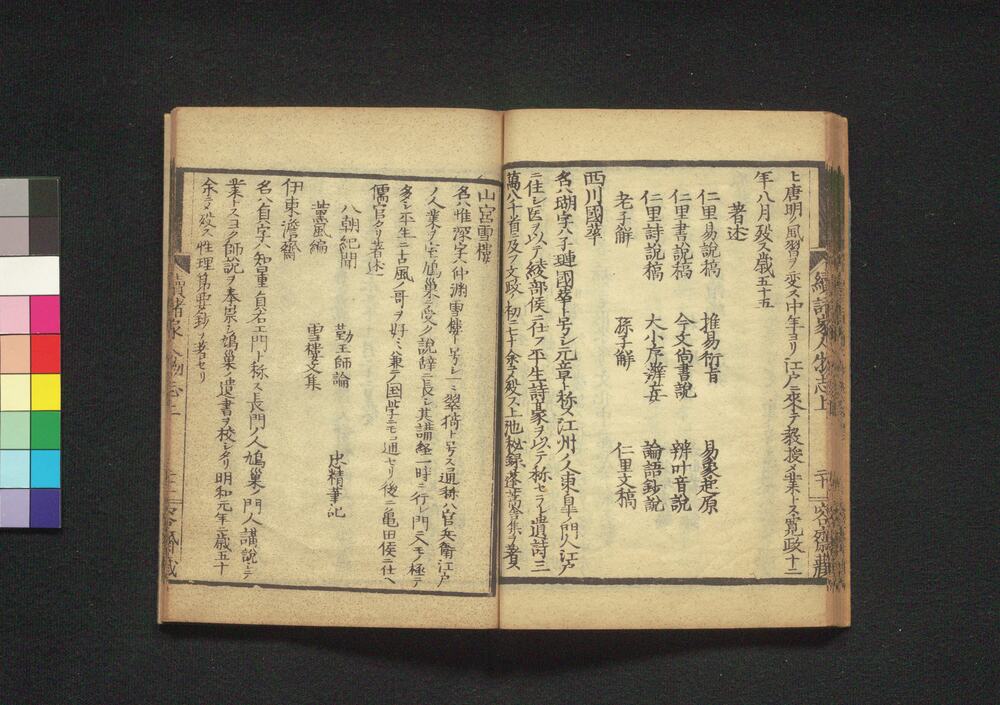 ヒ唐明ノ風習ヲ変ス中年ヨリ江戸ニ來テ教授メ業トス寛政十二
年八月殁ス歳五十五
著述
仁里易說稿 推易衍旨 易象起原
仁里書說稿 今文尚書說 辨叶音說
仁里詩說稿 大小序辨妄 論語鈔說
老子解 孫子解 仁里文稿
西川國華
名ハ瑚字ハ子璉國華ト号シ元章ト称ス江州ノ人東皐ノ門人江戸
ニ住シ医ヲ以テ綾部侯ニ仕フ平生詩豪ヲ以テ称セラレ遺詩三
萬八十首ニ及フ文政ノ初二七十余ニテ殁ス上池秘録蓬蒿舍集ヲ著ス
續諸家人物志上
山宮雪樓
名ハ惟深字ハ仲淵雪樓ト号シ一ニ翠猗ト号ス通称ハ官兵衛江戸
ノ人業ヲ室鳩巢ニ受ク說辭ニ長シ其講経一時ニ行レ門人モノ極テ
多シ平生ニ古風ノ哥ヲ好ミ兼テ国学ニモ通セリ後ニ亀田侯ニ仕ヘ
儒官タリ著述
八朝紀聞 勤王師論 忠精筆記
薫風編 雪樓文集
伊東澹齋
名ハ貞字ハ知量貞右エ門ト称ス長門ノ人鳩巢ノ門人講說シテ
業トスヨク師說ヲ奉崇シ鳩巢ノ遺書ヲ校シタリ明和元年ニ歳五十
余ニテ殁ス性理筆要鈔ヲ著セリ